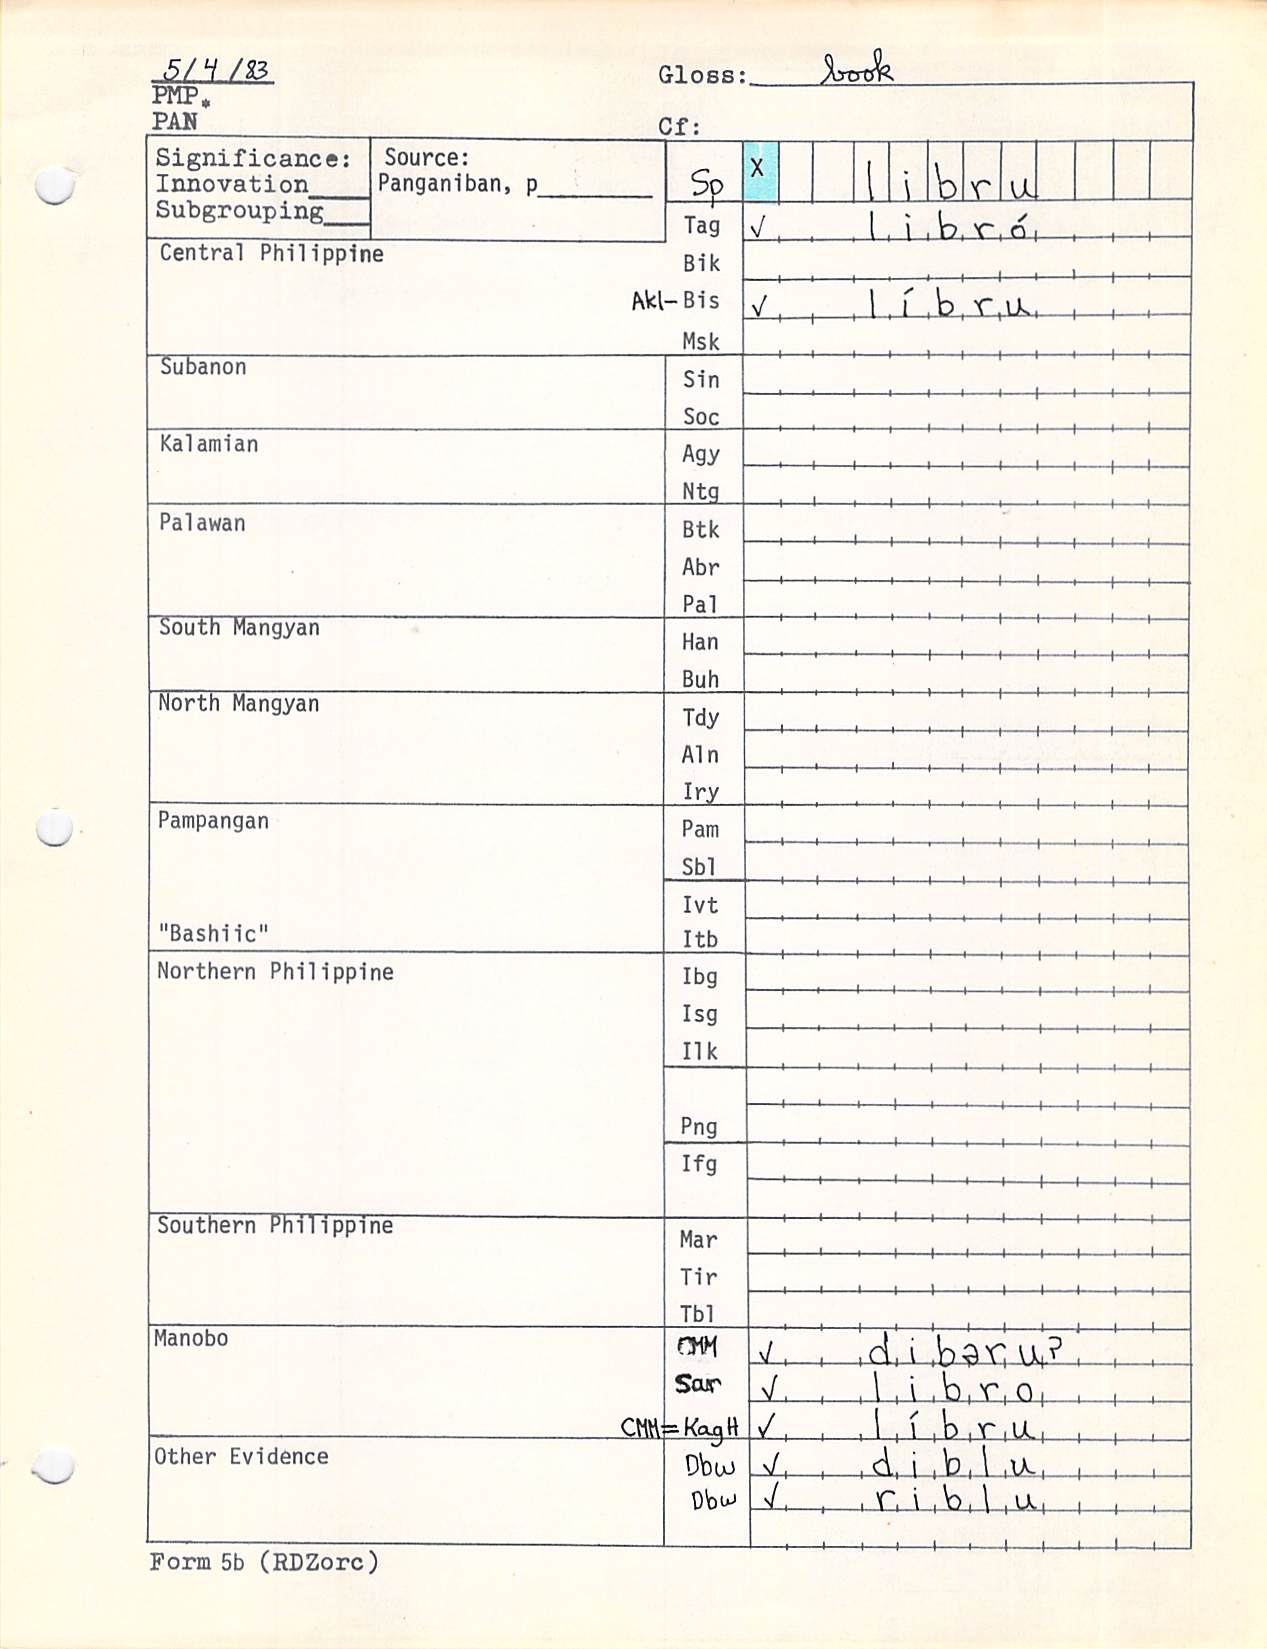 5/4/83 Gloss: book
PMP *
PAN Cf:
Significance: Source: Sp X libru
Innovation____ Panganiban, p____
Subgrouping____
Tag ✓ libró
Central Philippine
Bik
Akl-Bis ✓ líbru
Msk
Subanon
Sin
Soc
Kalamian
Agy
Ntg
Palawan
Btk
Abr
Pal
South Mangyan
Han
Buh
North Mangyan
Tdy
Aln
Iry
Pampangan
Pam
Sbl
Ivt
"Bashiic" Itb
Northern Philippine Ibg
Isg
Ilk
Png
Ifg
Southern Philippine
Mar
Tir
Tbl
Manobo
CMM ✓ dibəru?
Sar ✓ libro
CMM=KagH ✓ líbru
Other Evidence
Dbw ✓ diblu
Dbw ✓ riblu
Form 5b (RDZorc)